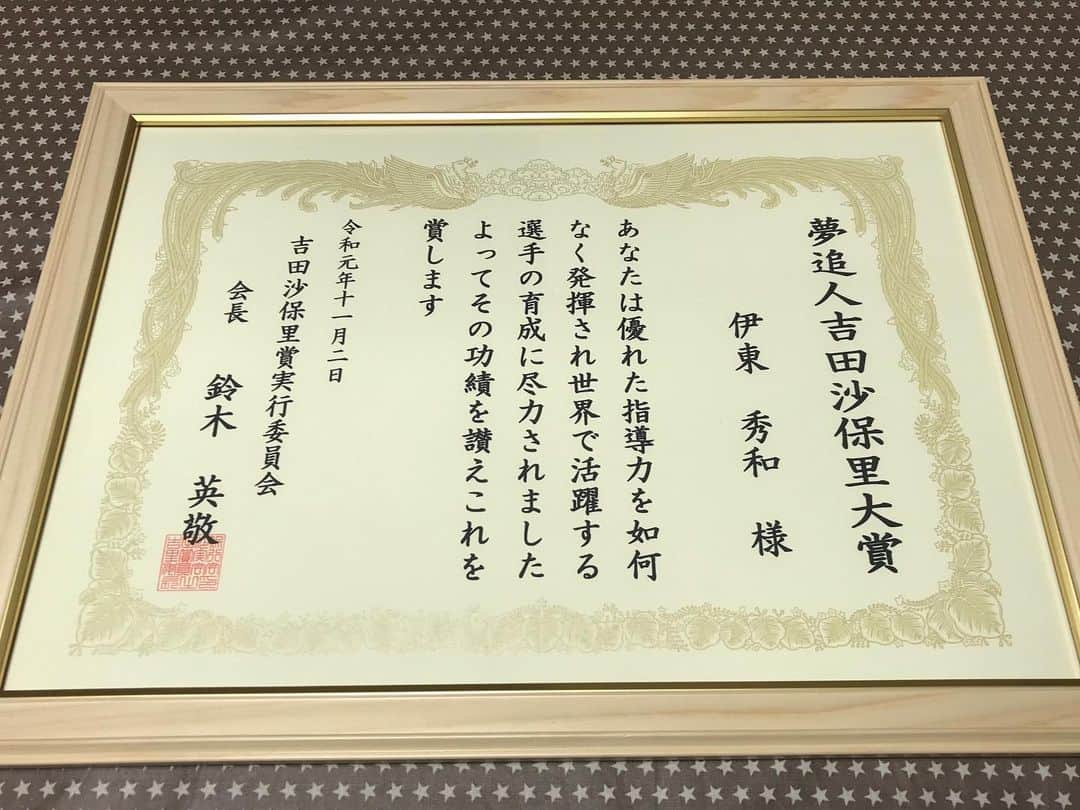 夢追人吉田沙保里大賞
伊東 秀和 様
あなたは優れた指導力を如何
なく発揮され世界で活躍する
選手の育成に尽力されました
よってその功績を讃えこれを
賞します
令和元年十一月二日
吉田沙保里賞実行委員会
会長 鈴木 英敬